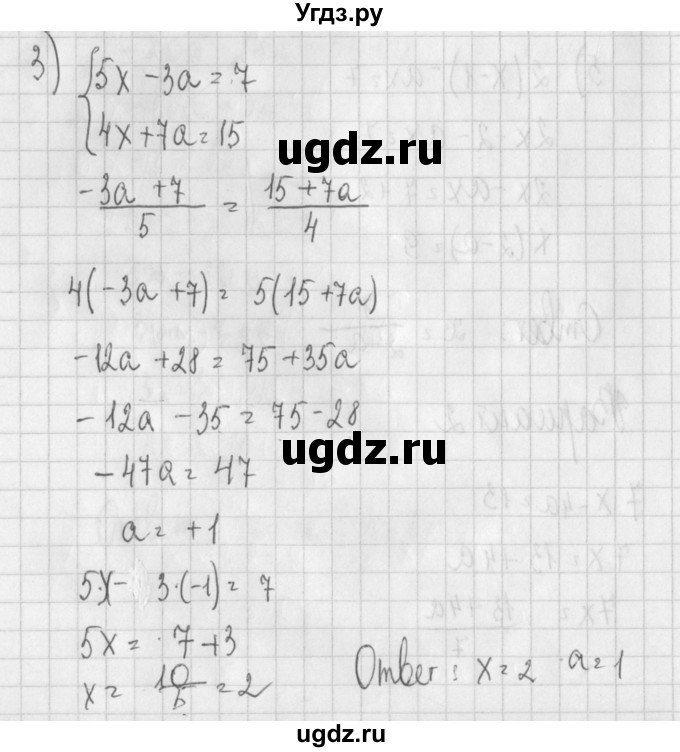 Угдз.ру
3) { 5x - 3a = 7
4x + 7a = 15
ugdz.ru
(-3a + 7)/5 = (15 + 7a)/4
4(-3a + 7) = 5(15 + 7a)
-12a + 28 = 75 + 35a
-12a - 35 = 75 - 28
ugdz.ru
-47a = 47
a = +1
5x - 3·(-1) = 7
5x = 7 + 3
x = 10/5 = 2
Ответ: x = 2 a = 1
ugdz.ru
Угдз.ру